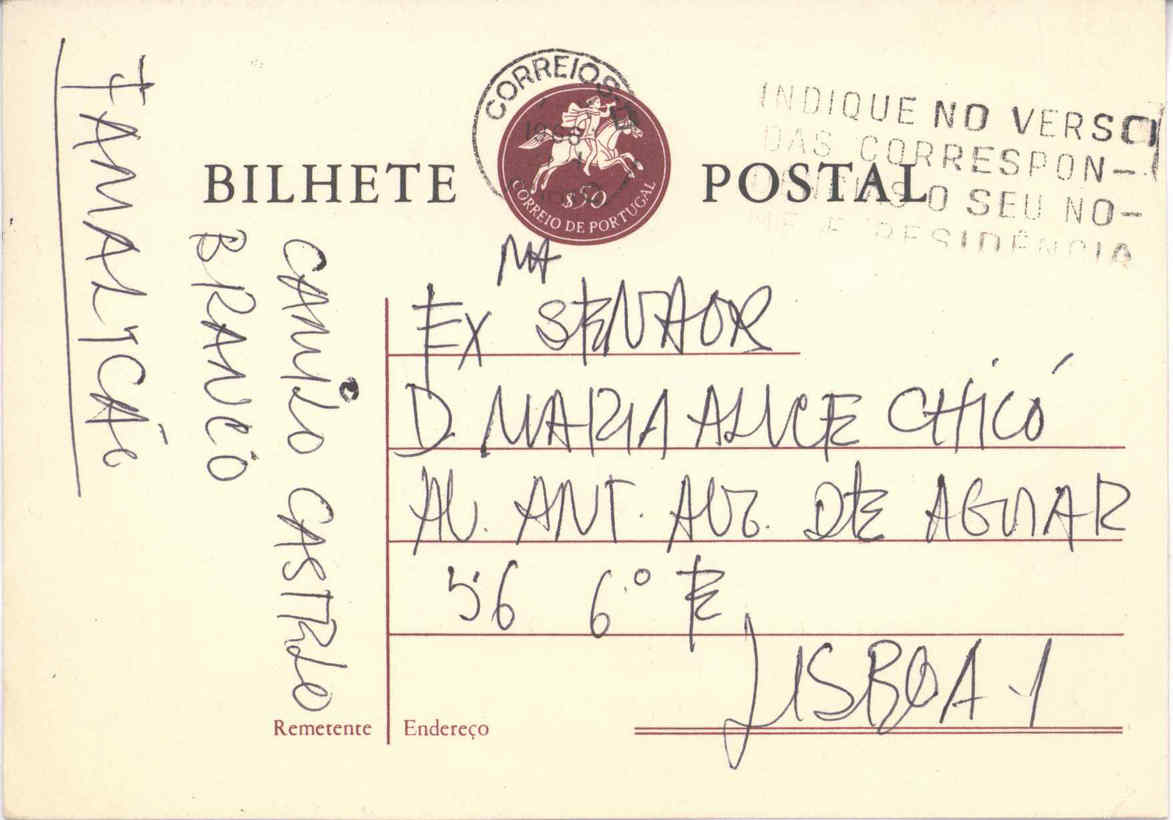 BILHETE POSTAL
CORREIOS
$50
CORREIO DE PORTUGAL
INDIQUE NO VERSO
DAS CORRESPON-
O SEU NO-
ME E RESIDÊNCIA
FAMALICÃO
CAMILO CASTELO
BRANCO
Remetente
EXMA SENHOR
D. MARIA ALICE CHICÓ
AV. ANT. AUG. DE AGUIAR
56 6º E
LISBOA-1
Endereço